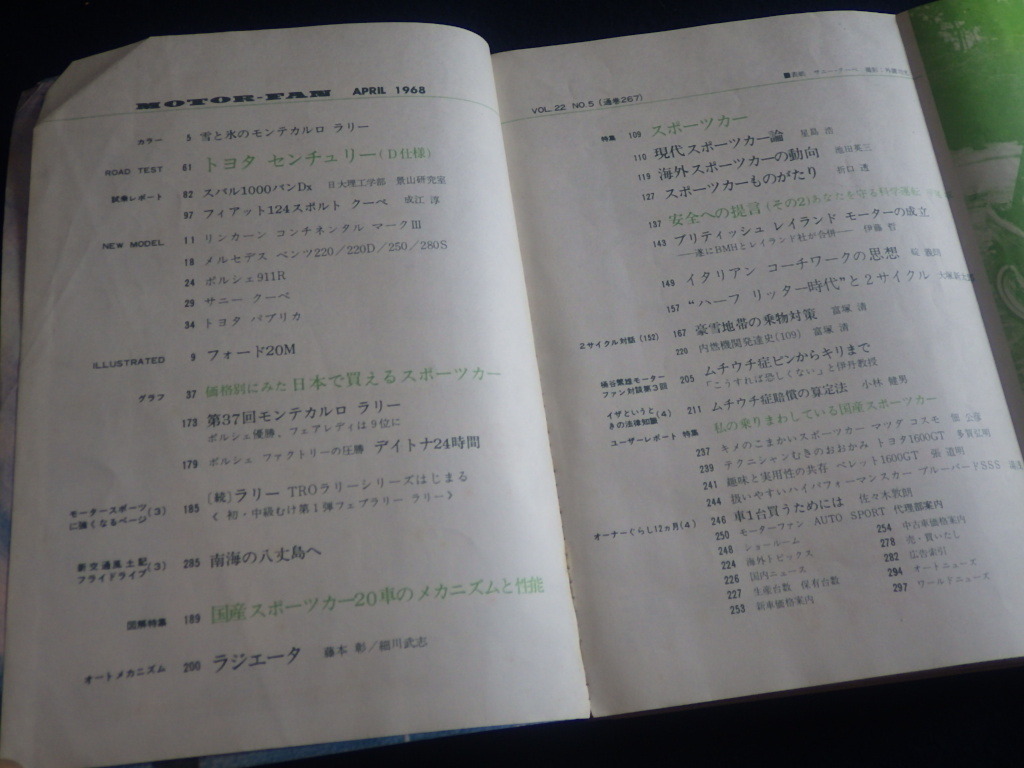 MOTOR-FAN APRIL 1968
カラー 5 雪と氷のモンテカルロ ラリー
ROAD TEST 61 トヨタ センチュリー(D仕様)
試乗レポート 82 スバル1000バンDx 日大理工学部 景山研究室
97 フィアット124スポルト クーペ 成江 淳
NEW MODEL 11 リンカーン コンチネンタル マークIII
18 メルセデス ベンツ220/220D/250/280S
24 ポルシェ911R
29 サニー クーペ
34 トヨタ パブリカ
ILLUSTRATED 9 フォード20M
グラフ 37 価格別にみた日本で買えるスポーツカー
173 第37回モンテカルロ ラリー
ポルシェ優勝、フェアレディは9位に
179 ポルシェ ファクトリーの圧勝 デイトナ24時間
モータースポーツに強くなるページ(3) 185 〔続〕ラリー TROラリーシリーズはじまる
《 初・中級むけ第1弾フェブラリー ラリー》
新交通風土記 フライドライブ(3) 285 南海の八丈島へ
図解特集 189 国産スポーツカー20車のメカニズムと性能
オートメカニズム 200 ラジエータ 藤本 彰/細川武志
VOL.22 NO.5 (通巻267)
■表紙 サニー・クーペ
特集 109 スポーツカー
110 現代スポーツカー論 星島 浩
119 海外スポーツカーの動向 池田英三
127 スポーツカーものがたり 折口 透
137 安全への提言(その2)あなたを守る科学運転
143 ブリティッシュ レイランド モーターの成立
——遂にBMHとレイランド社が合併—— 伊藤 哲
149 イタリアン コーチワークの思想
157 “ハーフ リッター時代”と2サイクル
167 豪雪地帯の乗物対策 富塚 清
2サイクル対話(152) 220 内燃機関発達史(109) 富塚 清
桶谷繁雄モーターファン対談第3回 205 ムチウチ症ピンからキリまで
「こうすれば恐しくない」と伊丹教授
イザというときの法律知識(4) 211 ムチウチ症賠償の算定法 小林 健男
ユーザーレポート 特集 私の乗りまわしている国産スポーツカー
237 キメのこまかいスポーツカー マツダ コスモ
239 テクニシャンむきのおおかみ トヨタ1600GT 多賀弘明
241 趣味と実用性の共存 ベレット1600GT 張 道明
244 扱いやすいハイパフォーマンスカー ブルーバードSSS
オーナーぐらし12ヵ月(4) 246 車1台買うためには 佐々木敦朗
250 モーターファン AUTO SPORT 代理部案内
248 ショールーム 254 中古車価格案内
224 海外トピックス 278 売・買いたし
226 国内ニュース 282 広告索引
227 生産台数 保有台数 294 オートニュース
253 新車価格案内 297 ワールドニュース